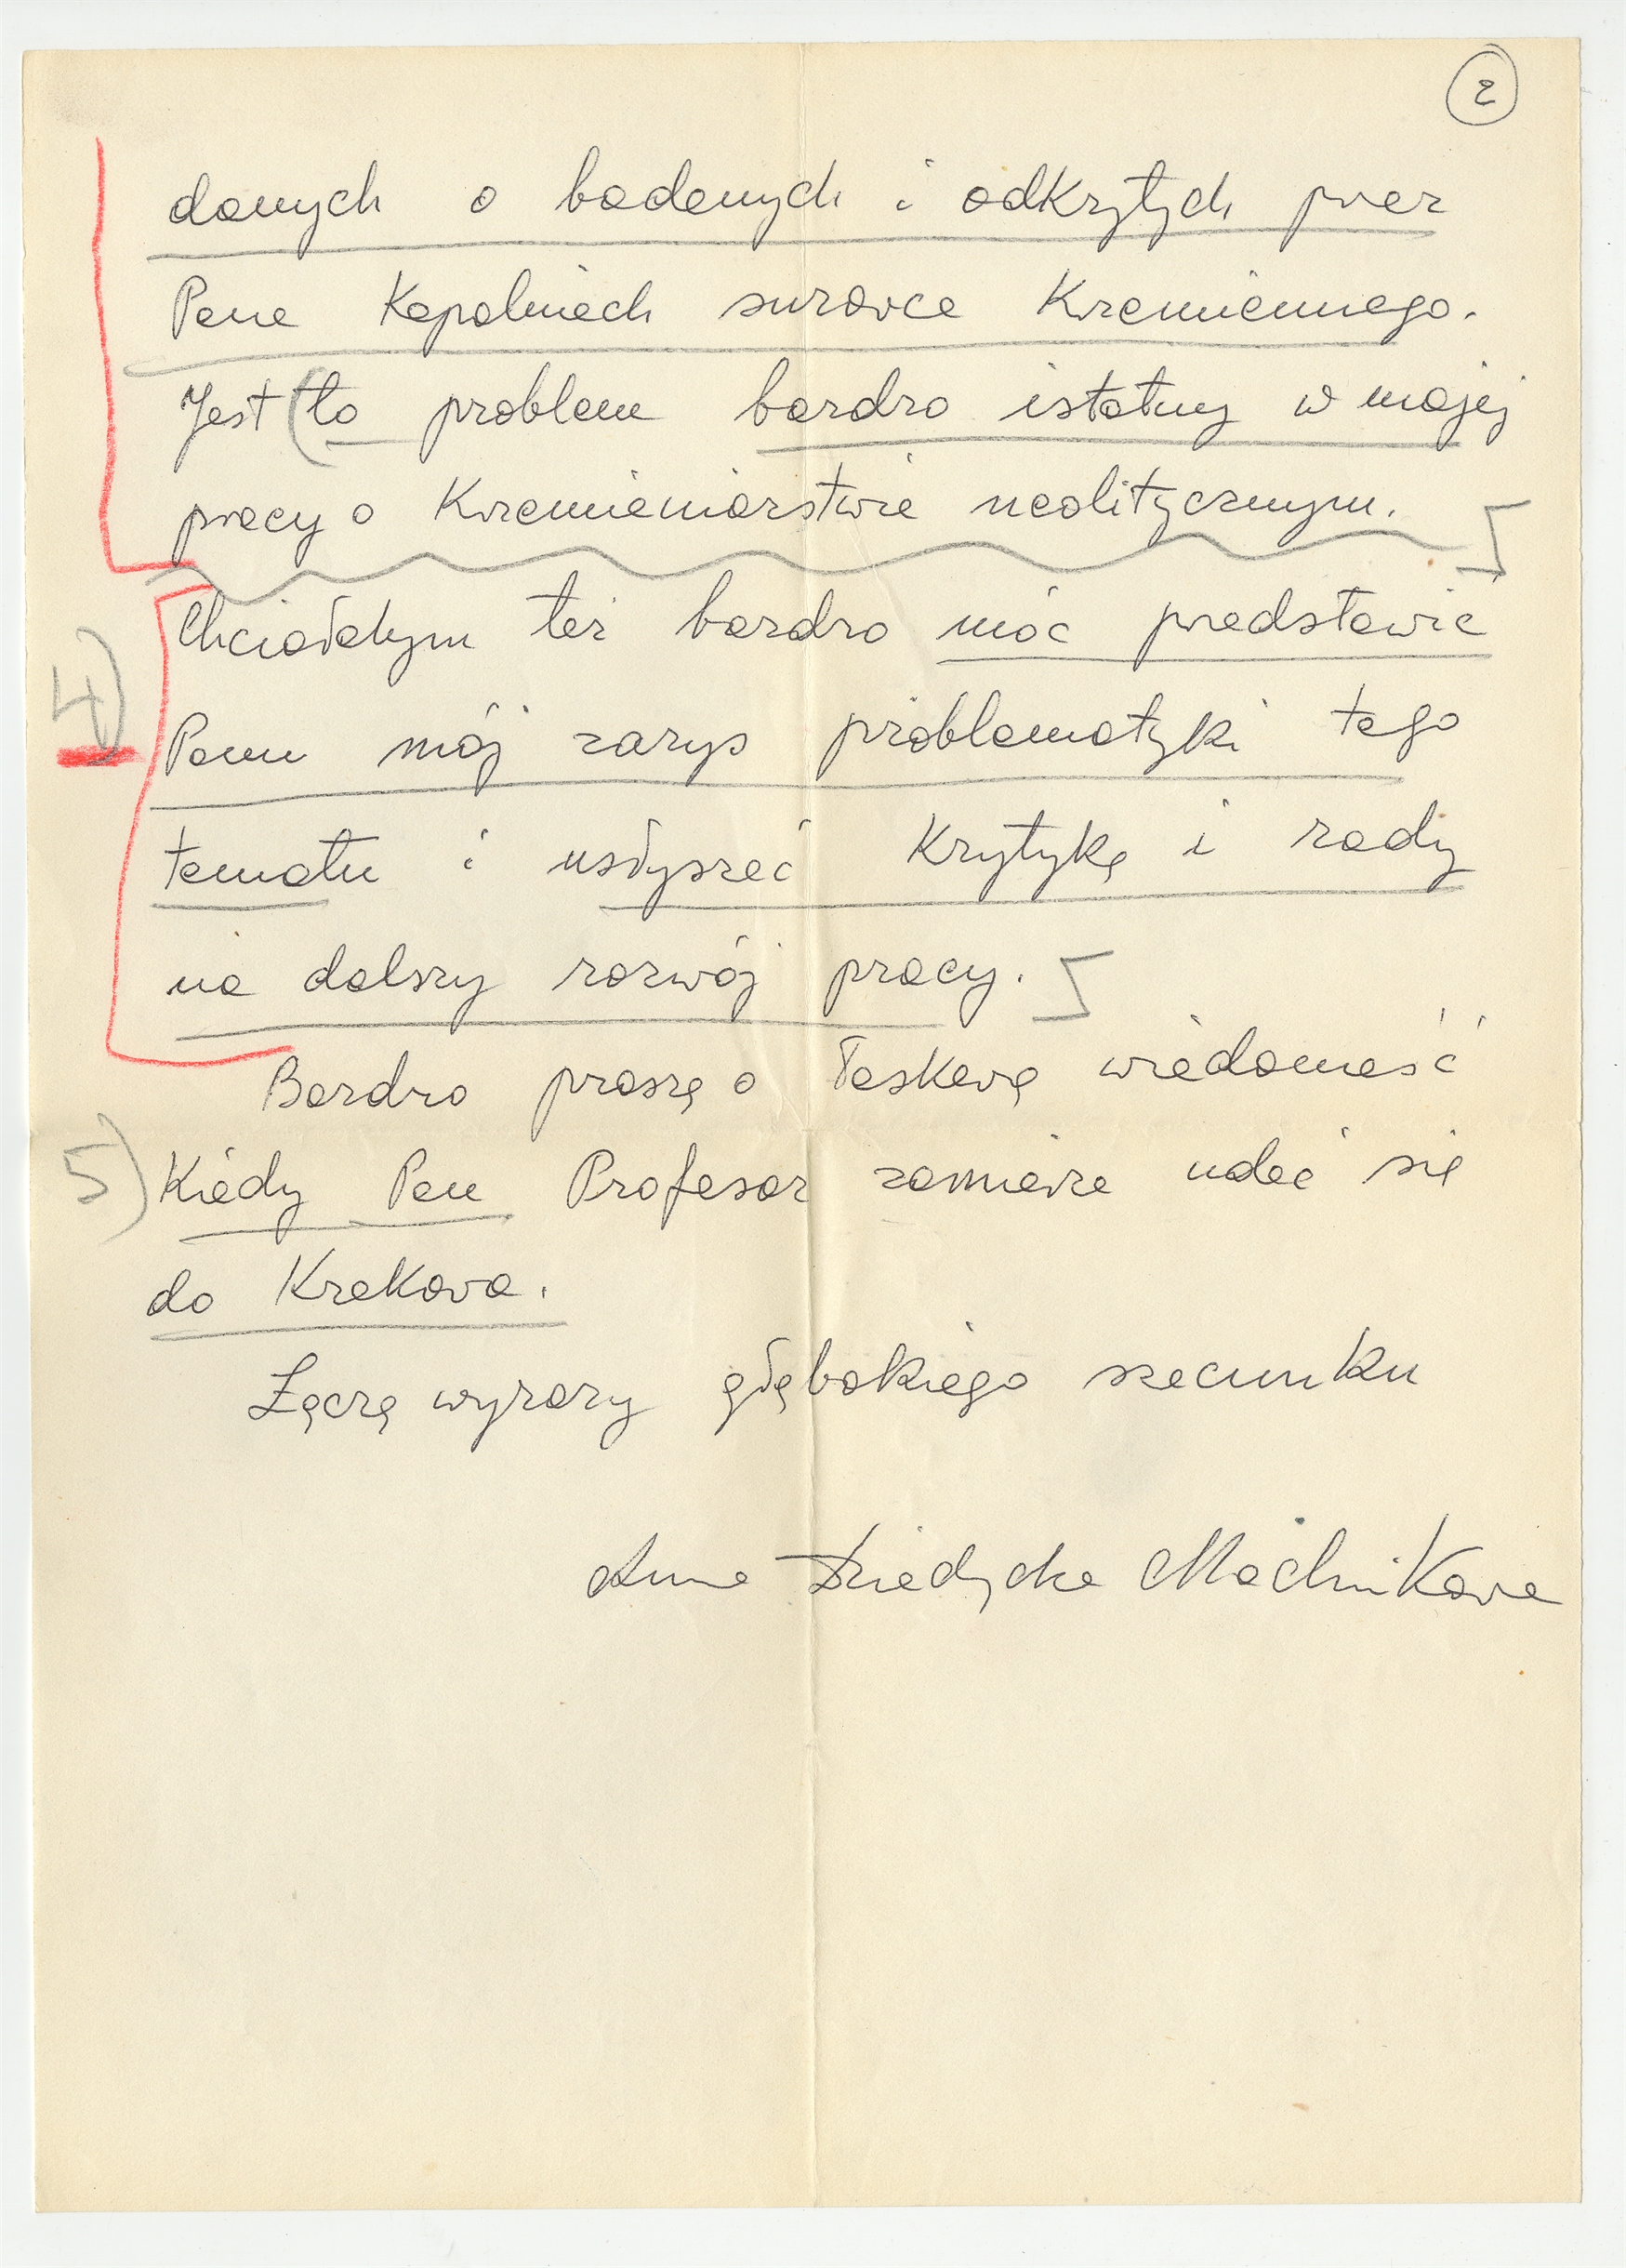 2
danych o badanych i odkrytych przez
Pana Kopalniach surowca Krzemiennego.
Jest (to problem bardzo istotny w mojej
pracy o Krzemieniarstwie neolitycznym.
Chciałabym też bardzo móc przedstawić
4) Panu mój zarys problematyki tego
tematu i usłyszeć Krytykę i rady
na dalszy rozwój pracy.
Bardzo proszę o łaskawą wiadomość
5) Kiedy Pan Profesor zamierza udać się
do Krakowa.
Łączę wyrazy głębokiego szacunku
Anna Dzieduszycka Machnikowa